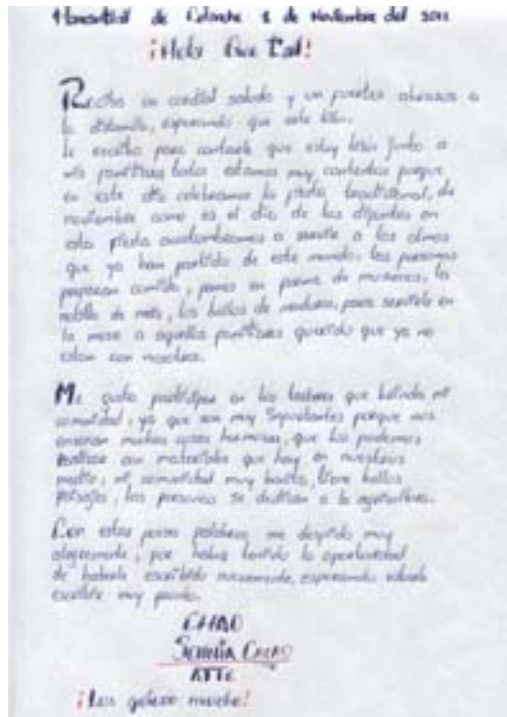 de Colonche 2 de Noviembre del
¡Hola Que Tal!
Reciba un cordial saludo y un abrazo a
la distancia, esperando que este bien.
Le escribo para contarle que estoy bien junto a
mis familiares todos estamos muy contentos porque
en este día celebramos la fiesta tradicional, de
noviembre como es el día de los difuntos en
esta fiesta acostumbramos a servirle a las almas
que ya han partido de este mundo, las personas
preparan comida, panes en forma de muñecos, la
natilla de maíz, los bollos de maduro, para servirle en
la mesa a aquellos familiares querido que ya no
estan con nosotros.
Me gusta participar en los talleres que brinda mi
comunidad, ya que son muy importantes porque nos
enseñan muchas cosas hermosas, que las podemos
realizar con materiales que hay en nuestro
medio, mi comunidad muy bonita, tiene bellos
paisajes, las personas se dedican a la agricultura.
Con estas pocas palabras me despido muy
alegremente, por haber tenido la oportunidad
de haberle escribido nuevamente, esperando
escribir muy pronto.
CHAO
ATTE
¡Los quiero mucho!